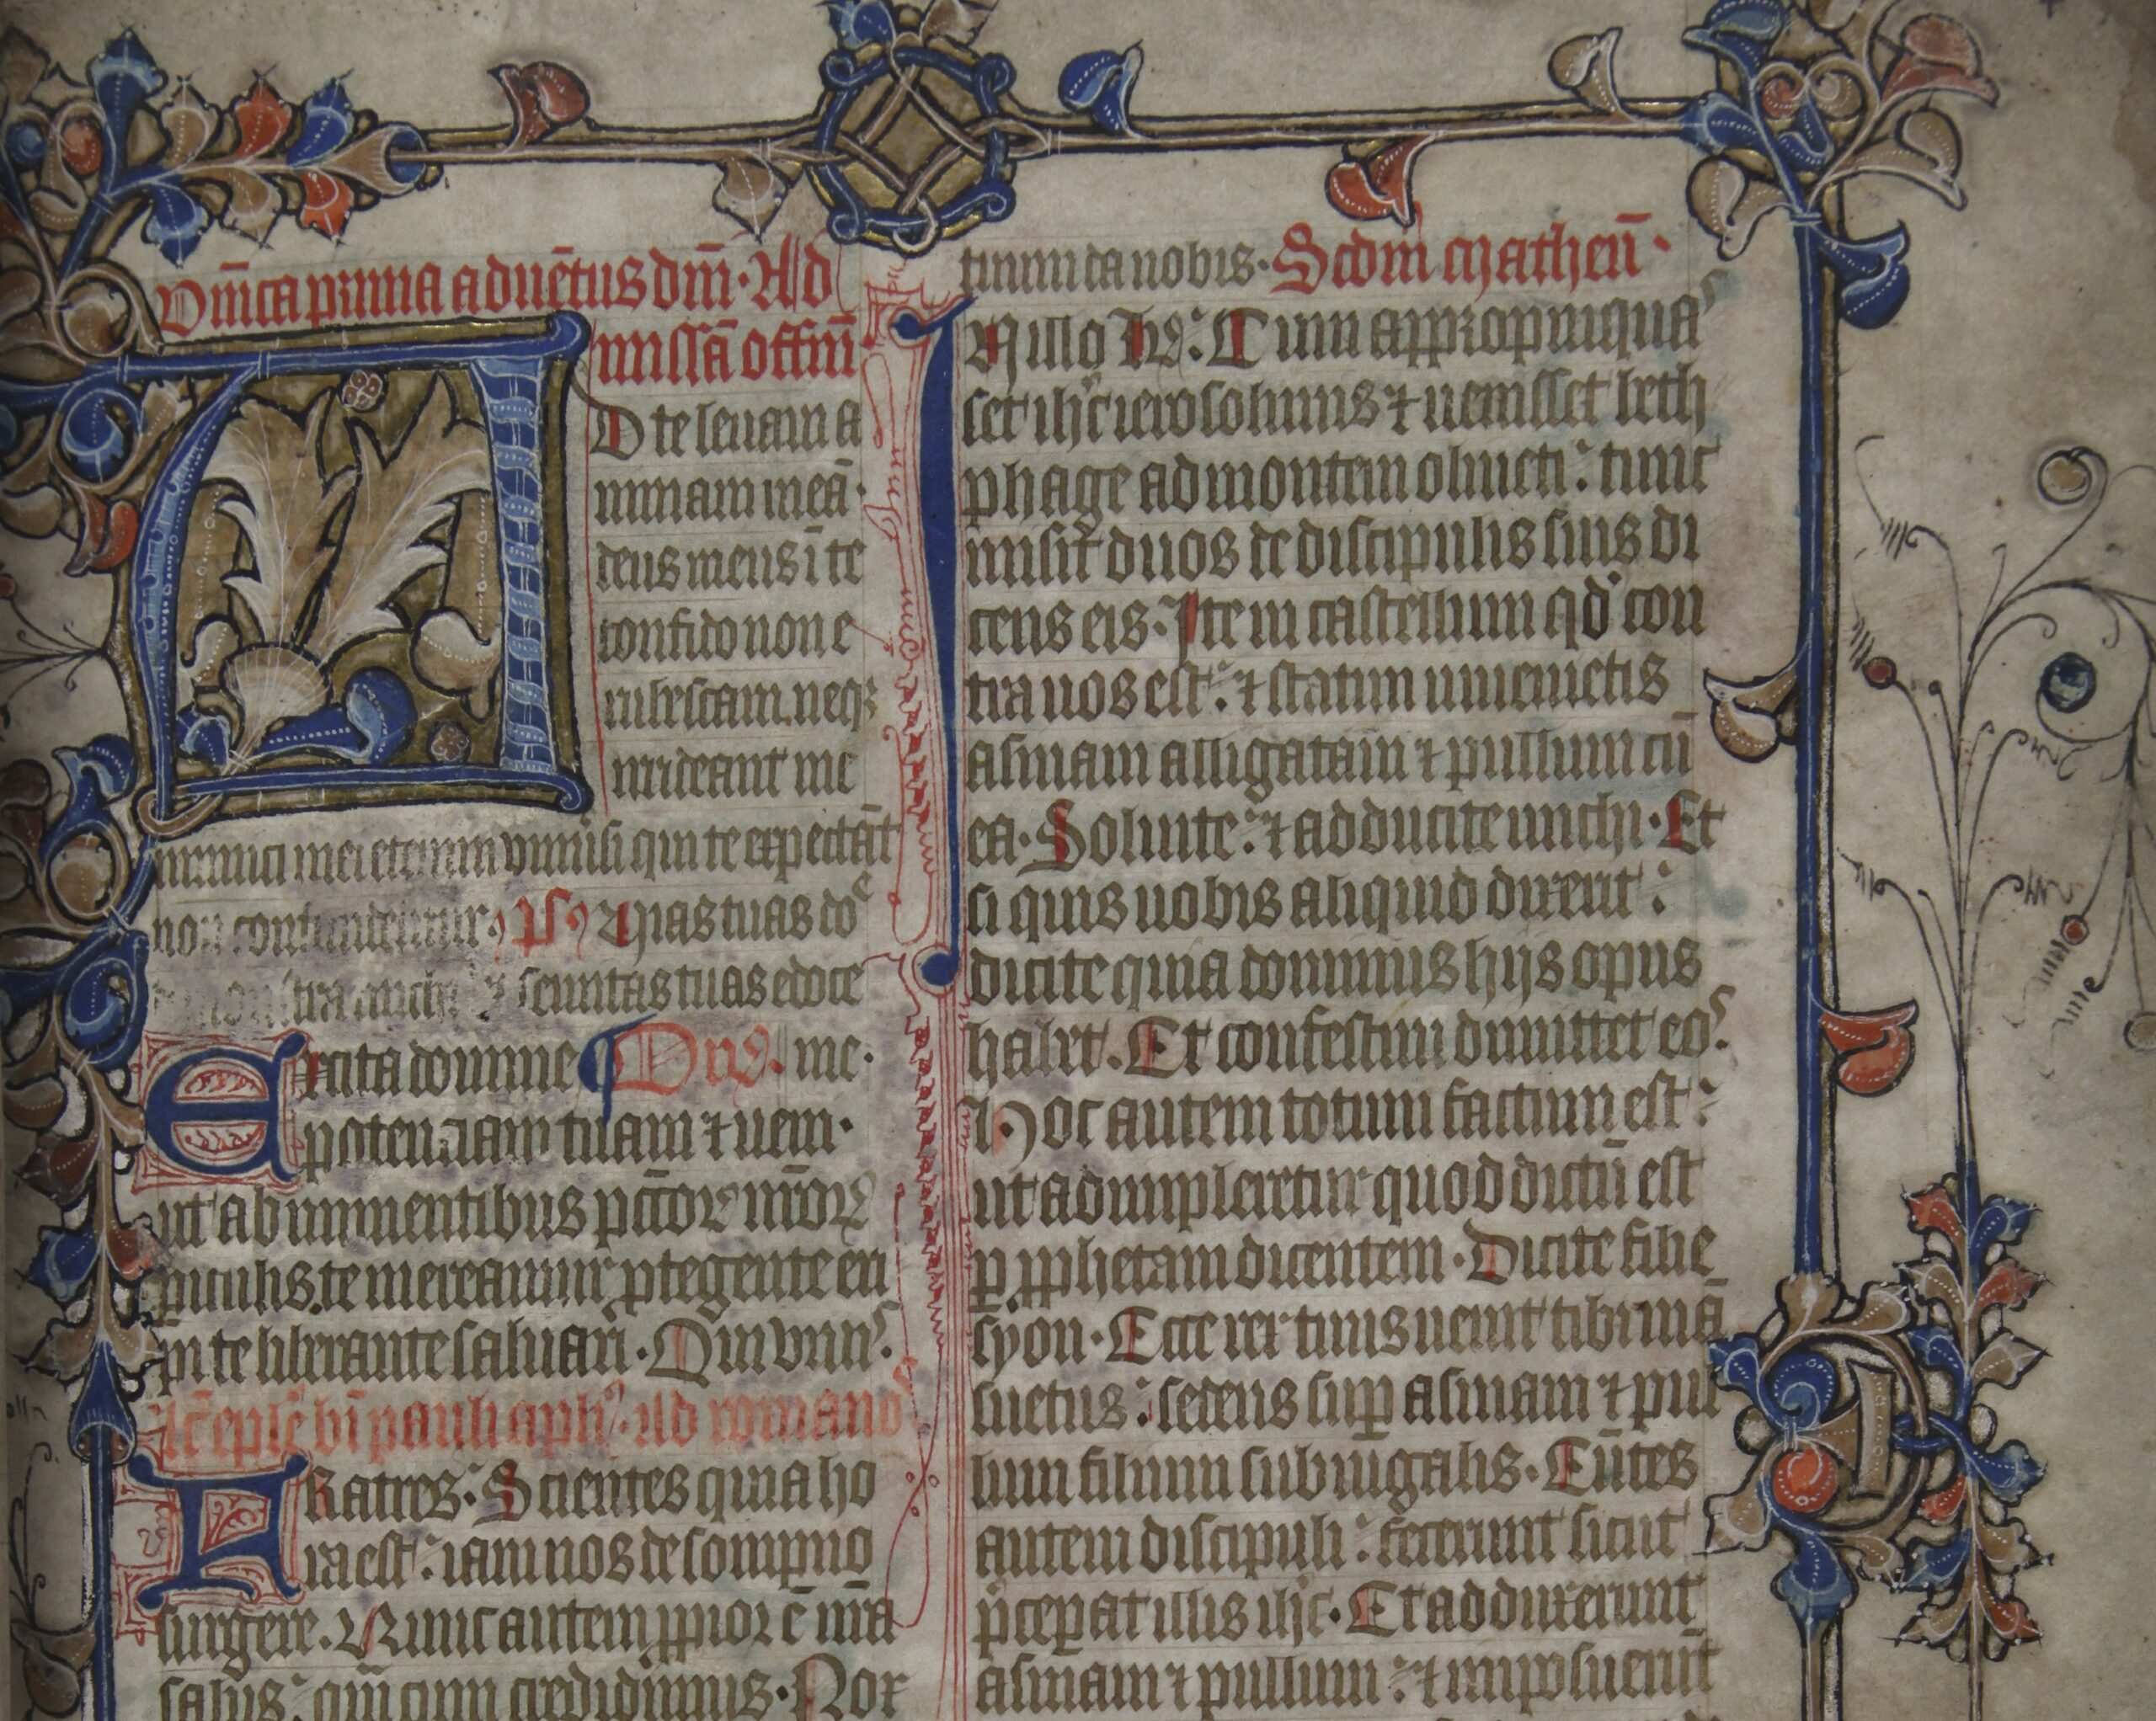 Dm̄ca prima aduētus dm̄. Ad
missā offm̄
D te leuaui a
nimam meā.
deus meus ī te
confido non e
rubescam. neqꝫ
irrideant me
inimici mei etenim vniuersi qui te expectāt
non confundentur. ps. Vias tuas do
mine demonstra michi ⁊ semitas tuas edoce
Excita domine Oro. me.
potenciam tuam ⁊ ueni.
ut ab imminentibus pctōꝝ nr̄oꝝ
periculis. te mereamur ꝓtegente eri
pi te liberante saluari. Qui viuis.
Lc̄ eple bī pauli apli. Ad romanos
FRatres. Scientes quia ho
ra est. iam nos de sompno
surgere. Nunc autem ꝓpior ē nr̄a
salus. qm̄ cum credidimus. Nox
tinuum da nobis. Scdm̄ matheū.
IN illo tp̄e. Cum appropinquas
set ihc ierosolimis ⁊ uenisset beth
phage ad montem oliueti. tunc
misit duos de discipulis suis di
cens eis. Ite in castellum qd̄ con
tra uos est. ⁊ statim inuenietis
asinam alligatam ⁊ pullum cū
ea. Soluite. ⁊ adducite michi. Et
si quis uobis aliquid dixerit.
dicite quia dominus hijs opus
habet. Et confestim dimittet eos.
Hoc autem totum factum est.
ut adimpleretur quod dictū est
ꝑ ꝓphetam dicentem. Dicite filie
syon. Ecce rex tuus uenit tibi mā
suetus. sedens suꝑ asinam ⁊ pul
lum filium subiugalis. Eūtes
autem discipuli. fecerunt sicut
p̄ceꝑat illis ihc. Et adduxerunt
asinam ⁊ pullum. ⁊ imposuerūt